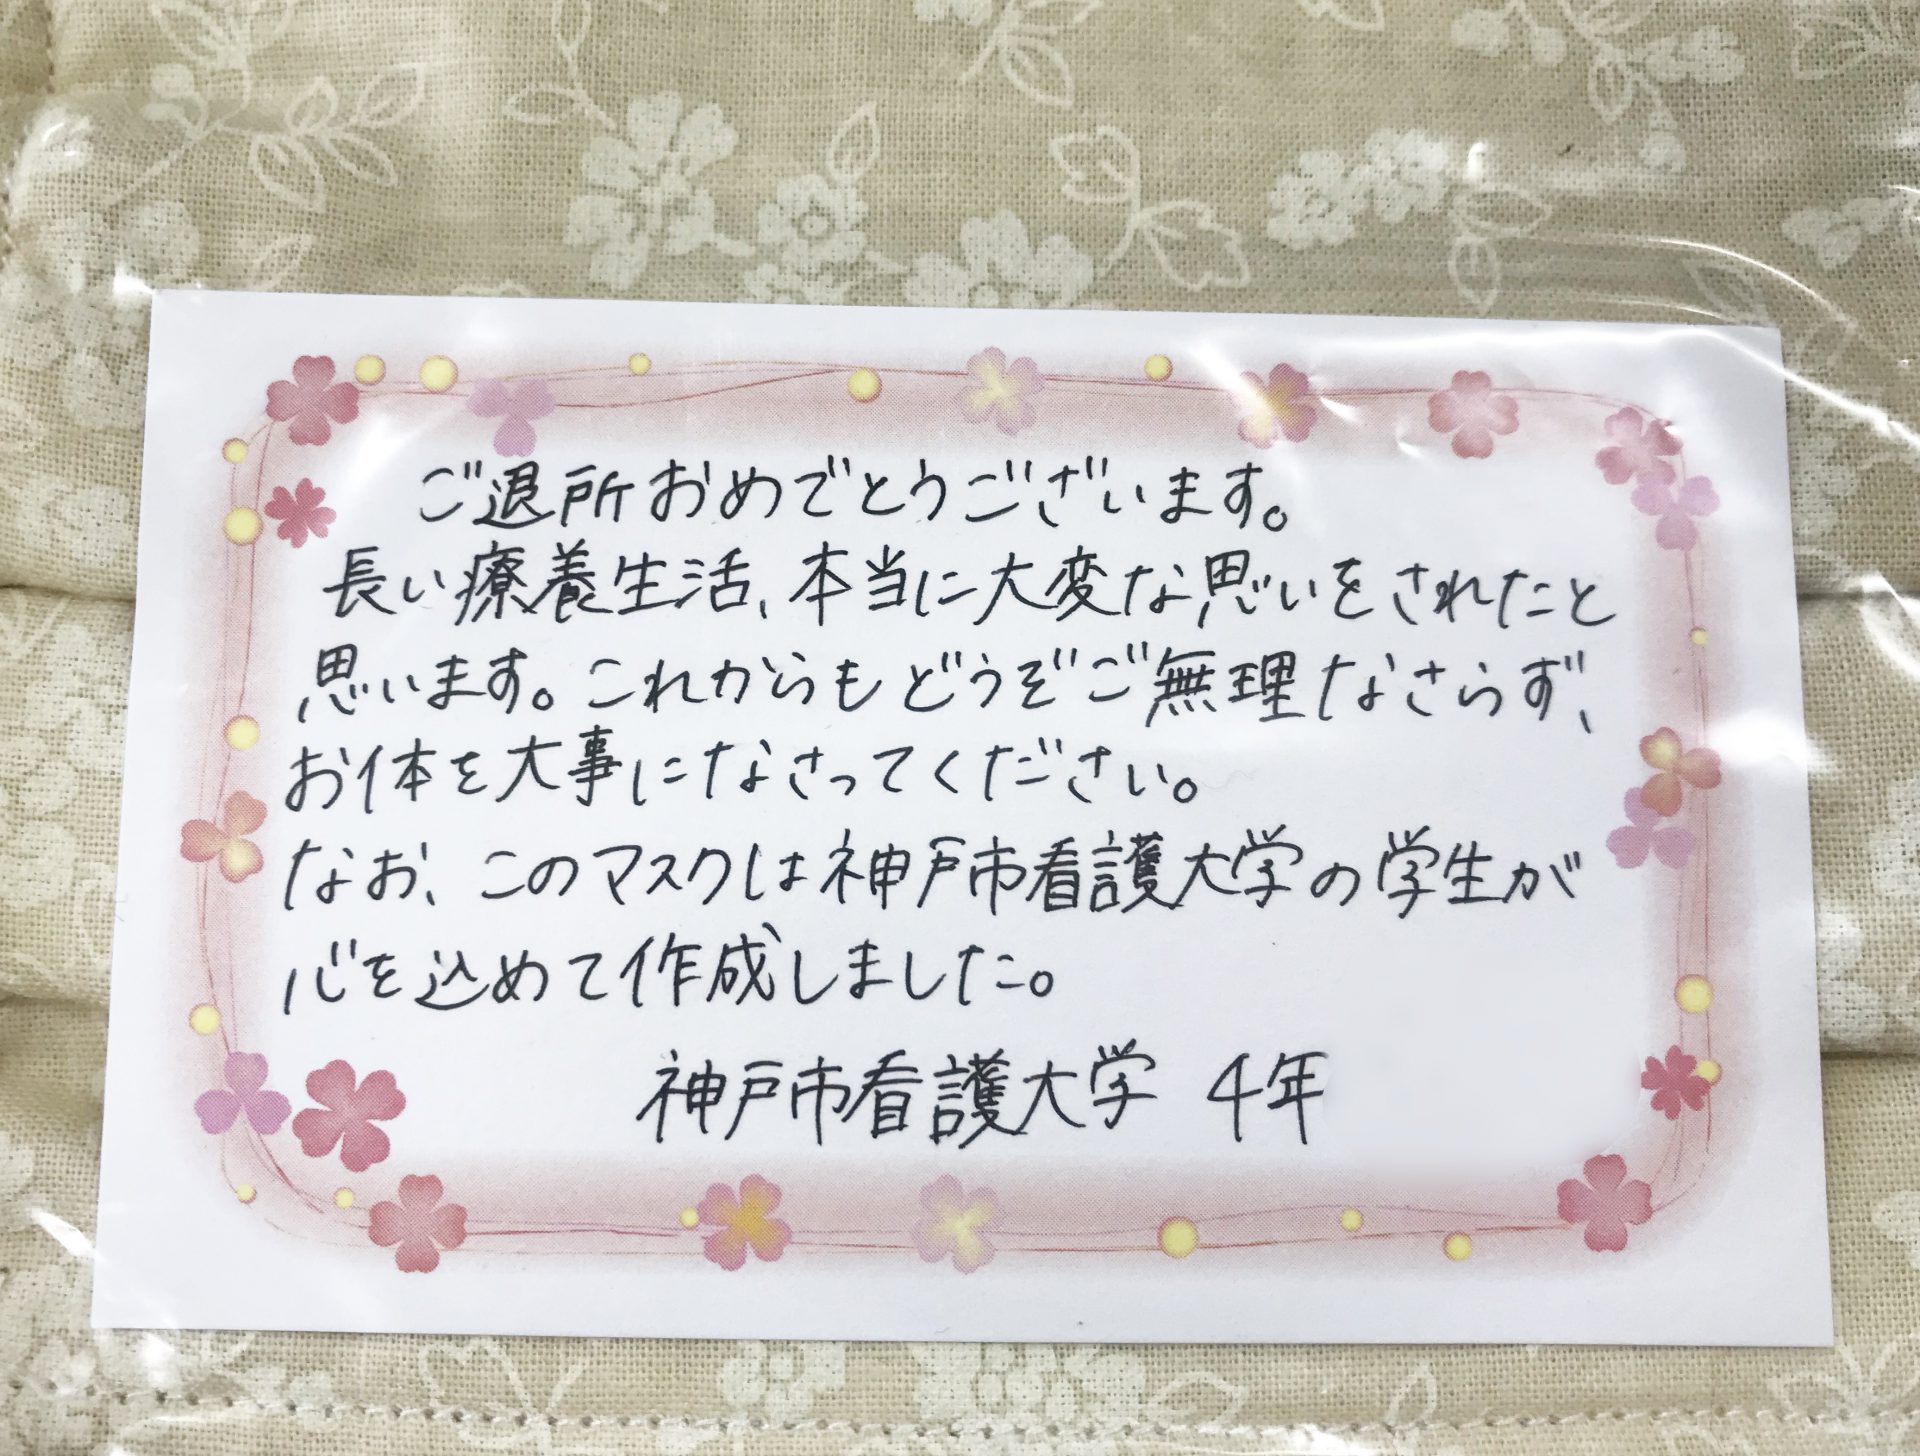 ご退所おめでとうございます。
長い療養生活、本当に大変な思いをされたと
思います。これからもどうぞご無理なさらず、
お体を大事になさってください。
なお、このマスクは神戸市看護大学の学生が
心を込めて作成しました。
神戸市看護大学 4年